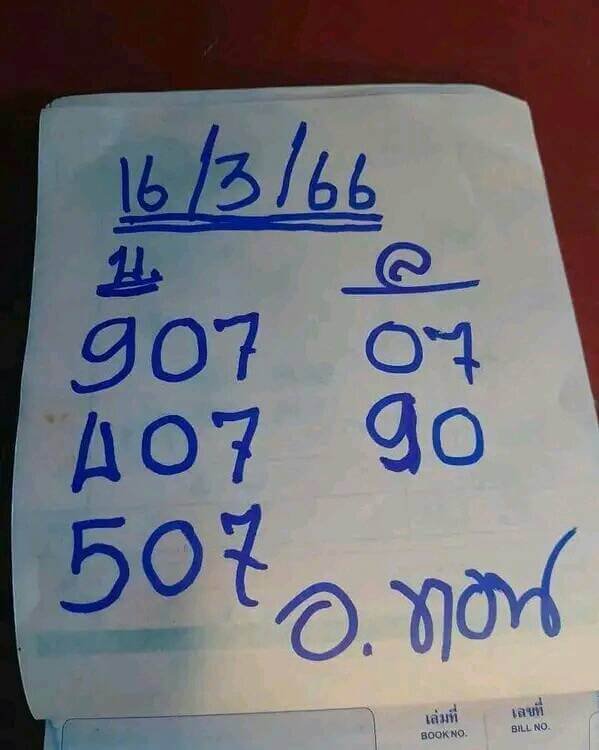 16/3/66
บ. ล
907 07
407 90
507
อ. ทอน
เล่มที่ เลขที่
BOOK NO. BILL NO.